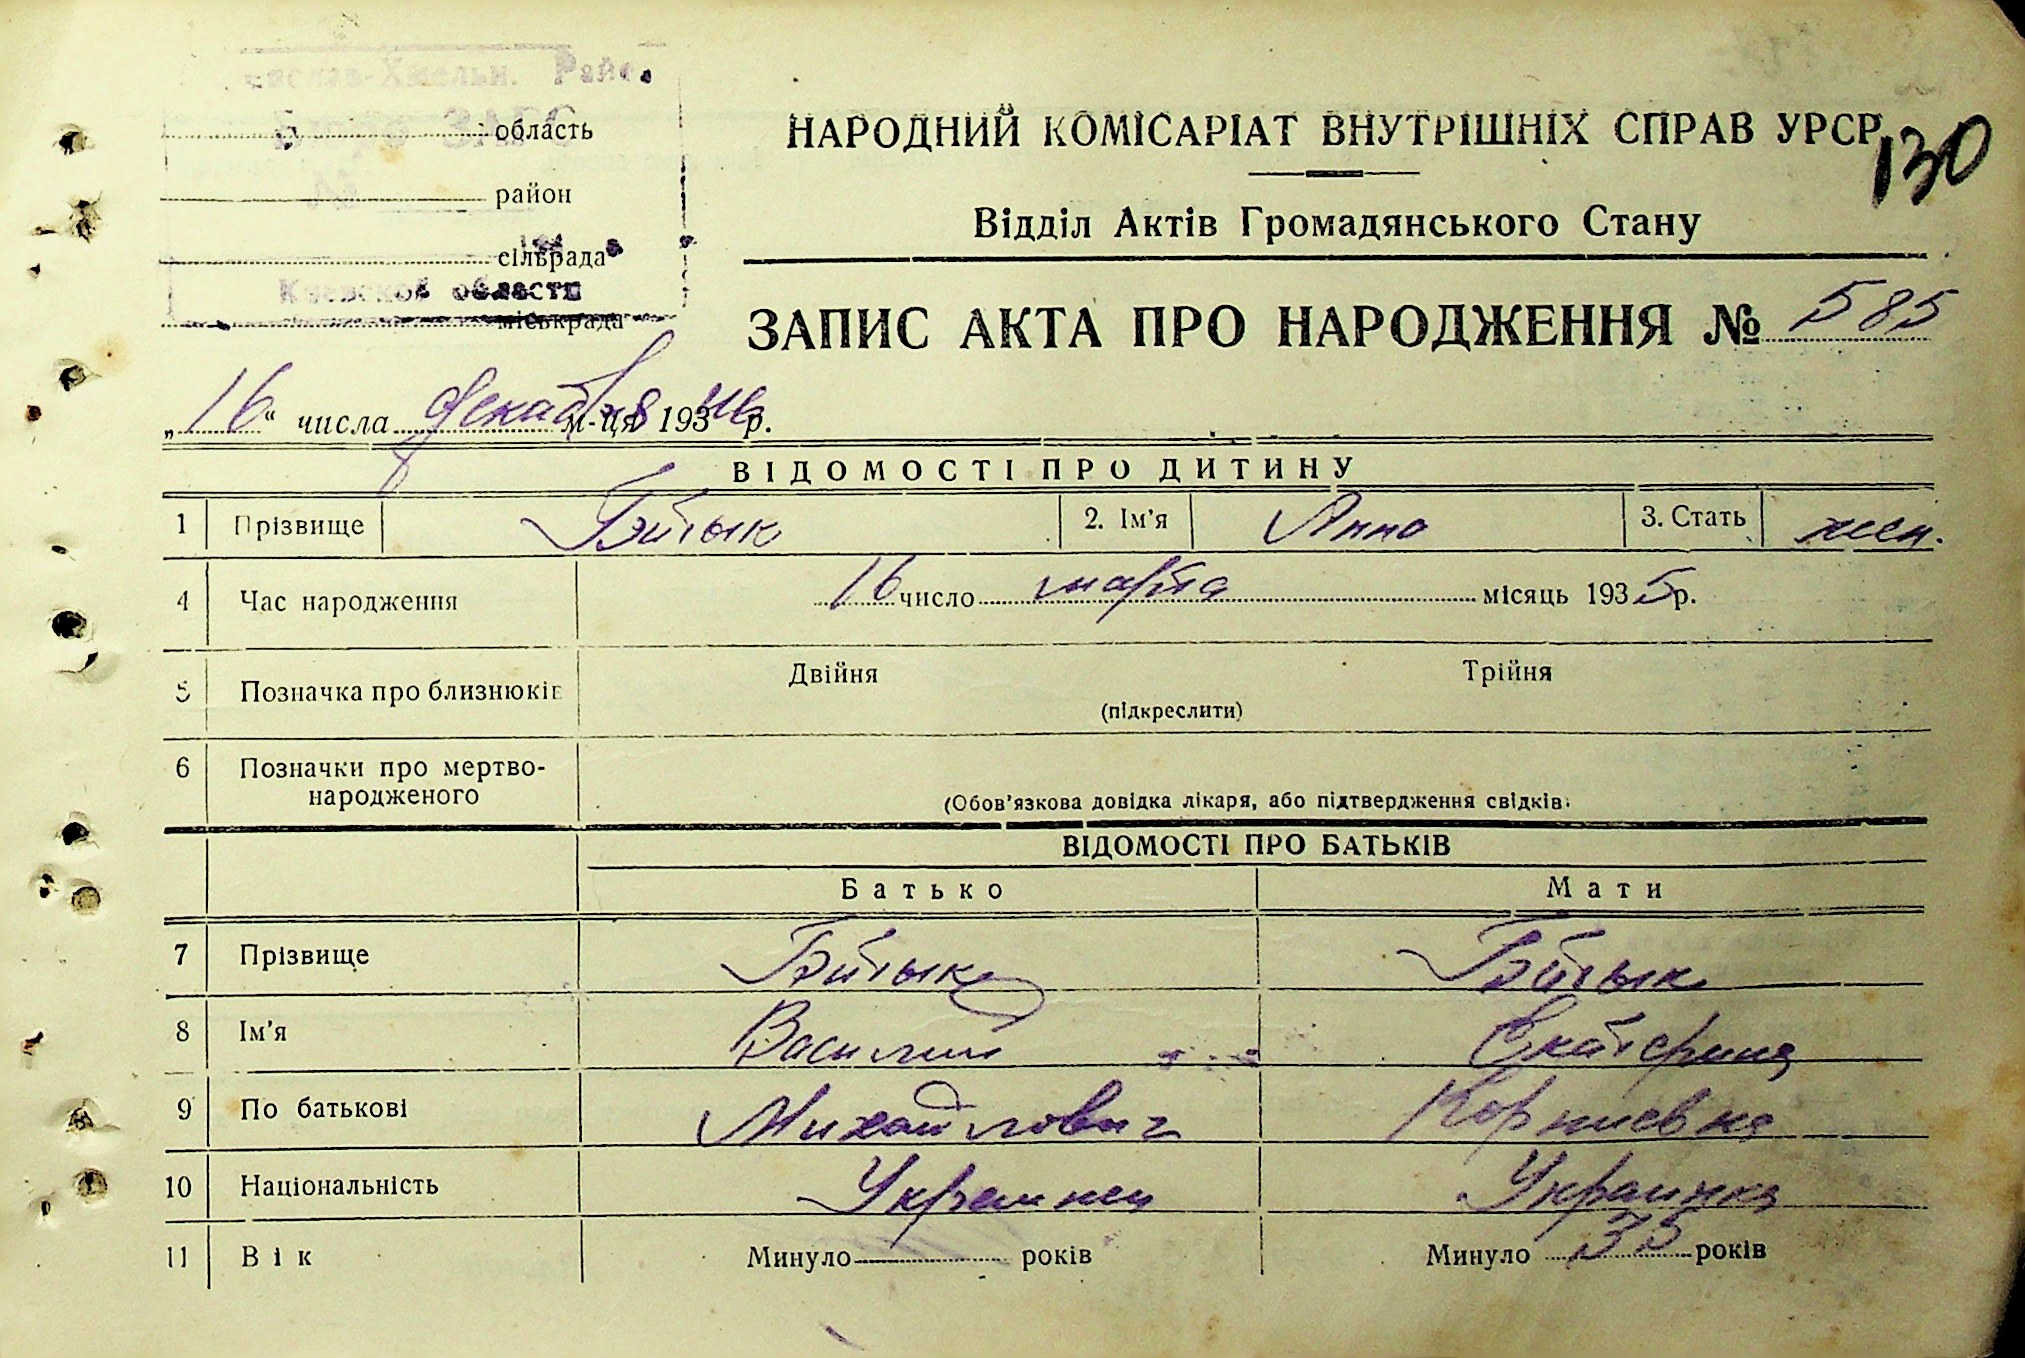 Хмельн. Район
Бюро ЗАГС
область
район
сільрада
Киевской области
міськрада
НАРОДНИЙ КОМІСАРІАТ ВНУТРІШНІХ СПРАВ УРСР
130
Відділ Актів Громадянського Стану
ЗАПИС АКТА ПРО НАРОДЖЕННЯ № 585
„16“ числа декабря м-ця 193 р.
ВІДОМОСТІ ПРО ДИТИНУ
1 Прізвище 2. Ім’я Анна 3. Стать жен.
4 Час народження 16 число марта місяць 1935 р.
5 Позначка про близнюків Двійня Трійня
(підкреслити)
6 Позначки про мертво-
народженого
(Обов’язкова довідка лікаря, або підтвердження свідків.
ВІДОМОСТІ ПРО БАТЬКІВ
Батько Мати
7 Прізвище
8 Ім’я Василий Екатерина
9 По батькові Михайлович Корниевна
10 Національність Украинец Украинка
11 Вік Минуло років Минуло 35 років